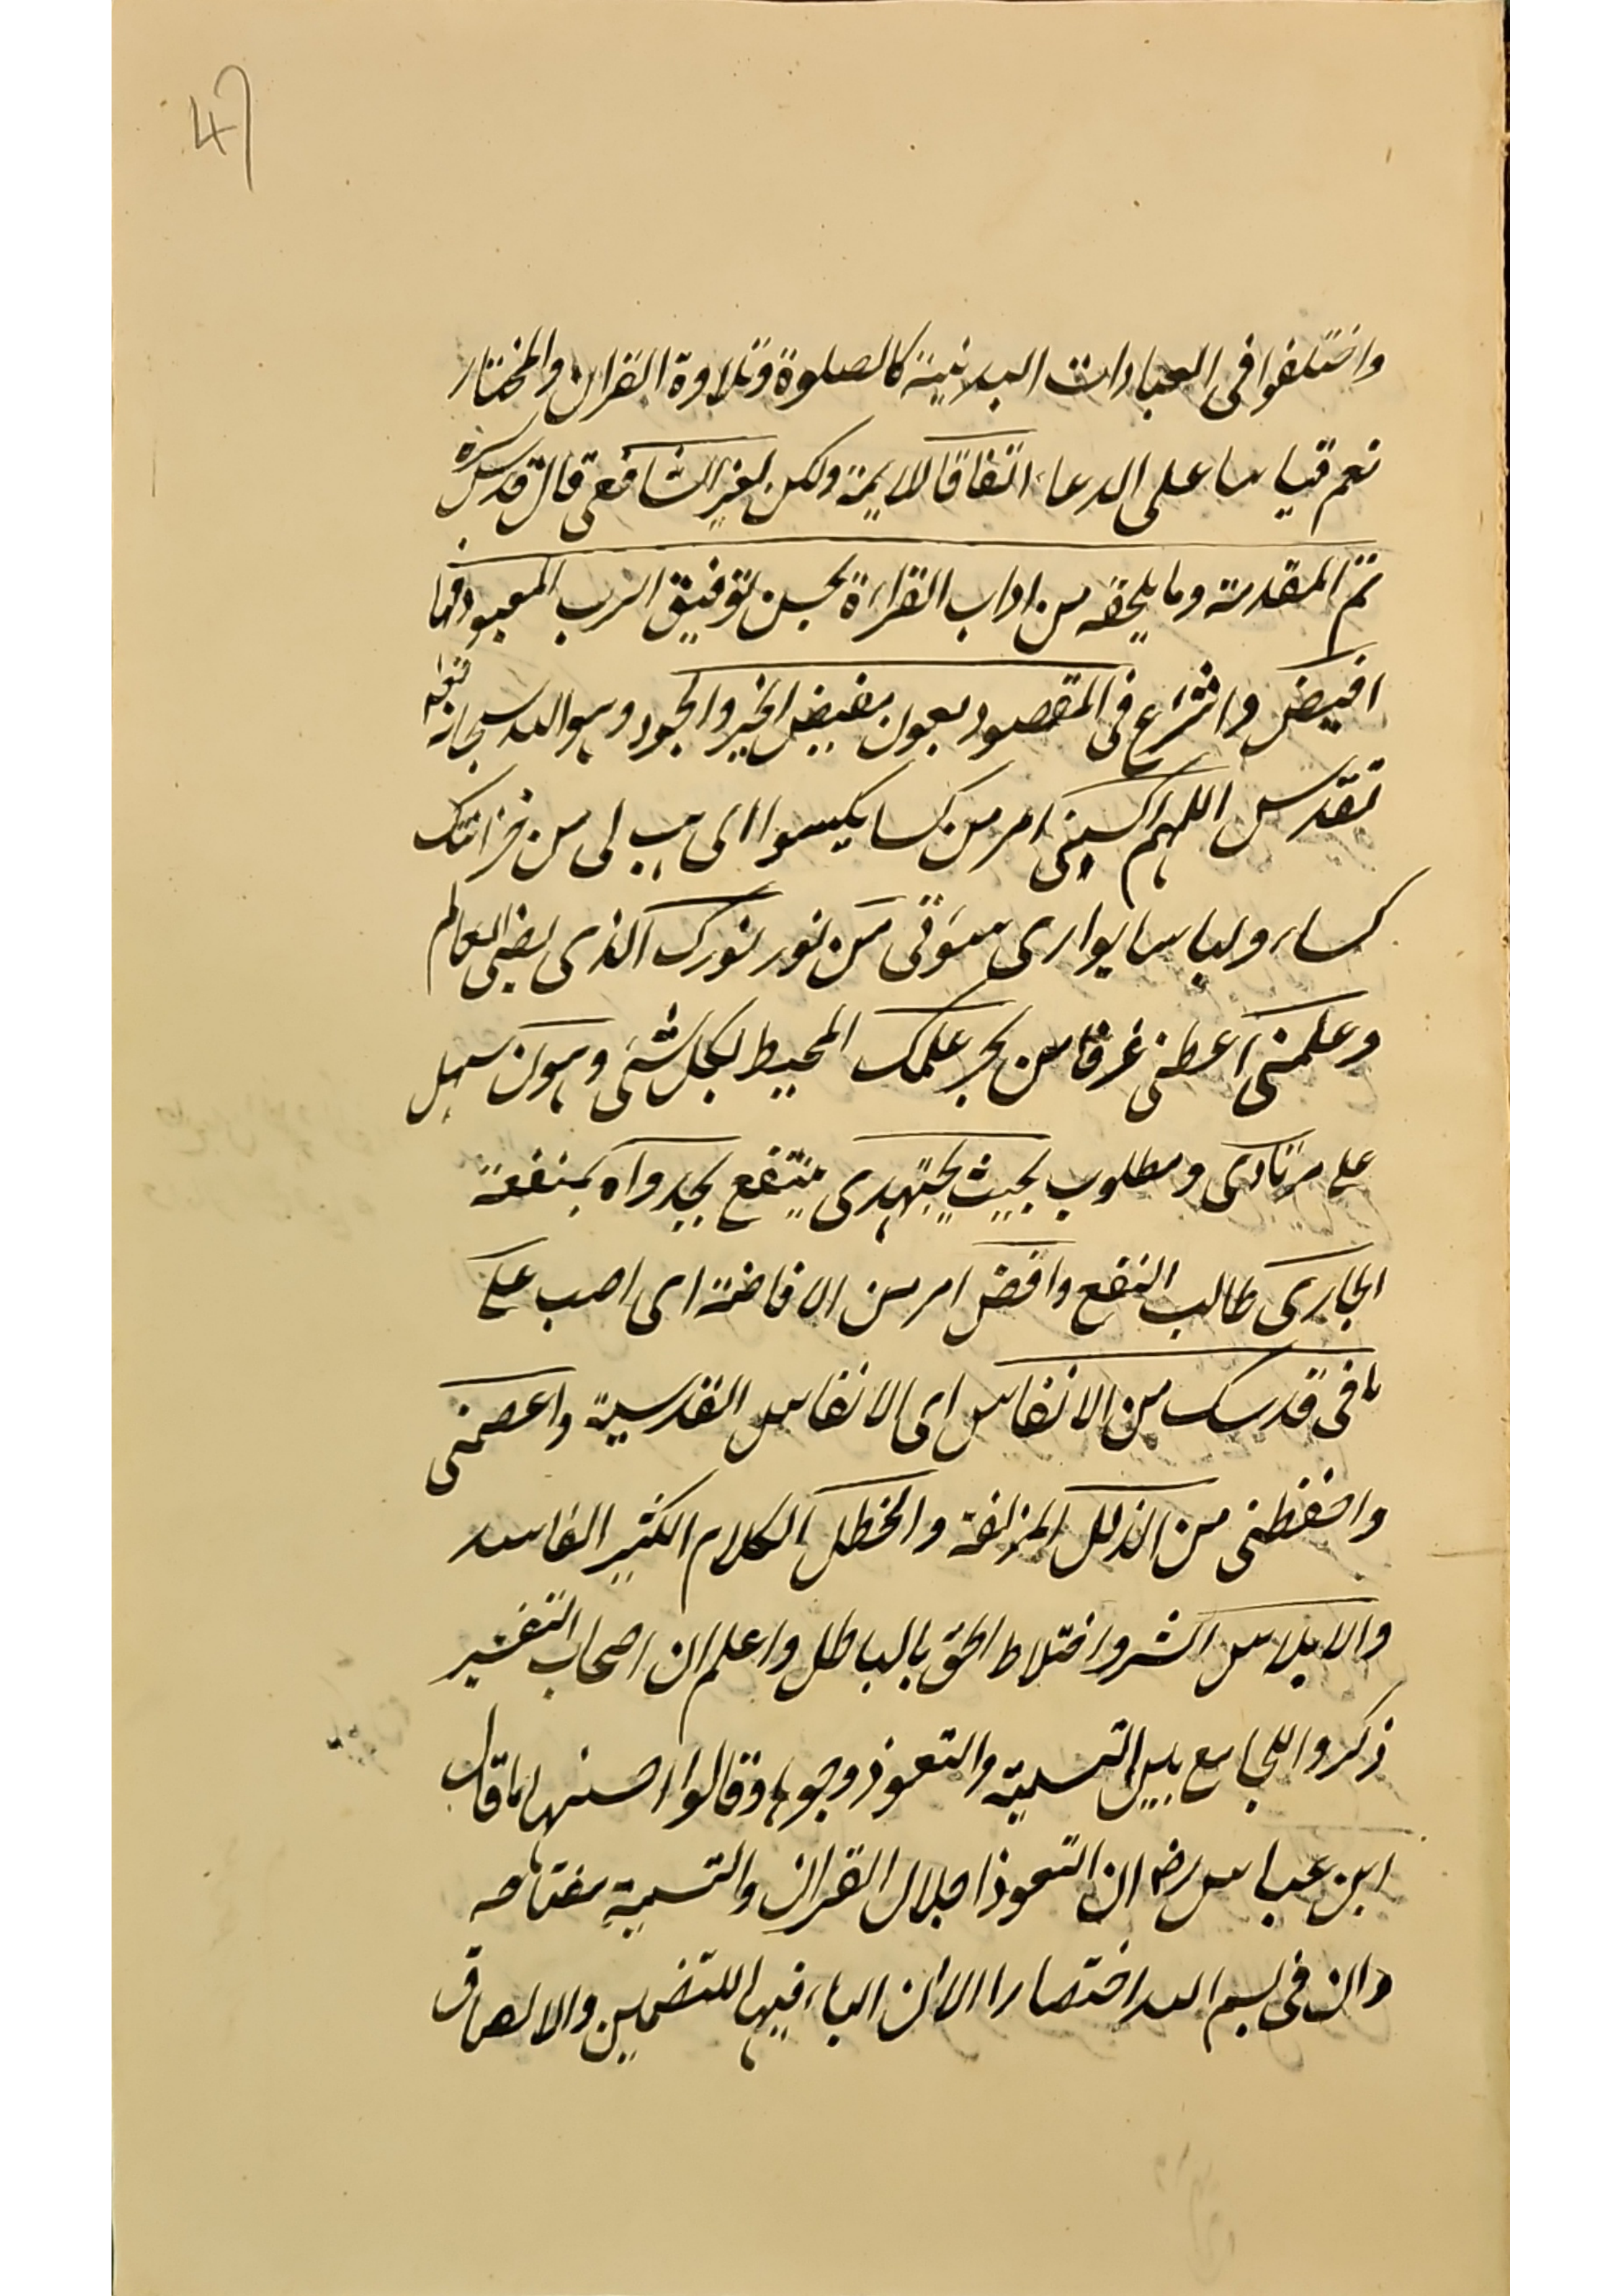 47
واختلفوا فى العبادات البدنية كالصلوة وتلاوة القران والمختار
نعم قياسا على الدعاء اتفاقا لايمة ولكن لغير الشافعى قال قدس سره
تم المقدمة وما يلحقه من اداب القراءة بحسن توفيق الرب المعبود فما
افيض واشرع فى المقصود بعون مفيض الخير والجود وهو الله سبحانه تعه
تقدس اللهم اكسنى امر من كسا يكسوا اى هب لى من خزانتك
كساء ولباسا يوارى سوتى من نور نورك الذى يضى العالم
وعلمنى اعطنى غرفا من بحر علمك المحيط لكل شئ وهون سهل
على مرتادى ومطلوب بحيث يجتهدى ينتفع بجدواه بمنفعة
الجارى طالب النفع وافض امر من الافاضة اى اصب على
ما فى قدسك من الانفاس اى الانفاس القدسية واعصمنى
واحفظنى من الذلل المزلفة والخطل الكلام الكثير الفاسد
والابلاس الشر واختلاط الحق بالباطل واعلم ان اصحاب التفسير
ذكروا للجامع بين التسمية والتعوذ وجوها وقالوا احسنها ما قال
ابن عباس رضـ ان التعوذ اجلال القران والتسمية مفتاحه
وان فى بسم الله اختصارا لان الباء فيها للتضمين والالصاق